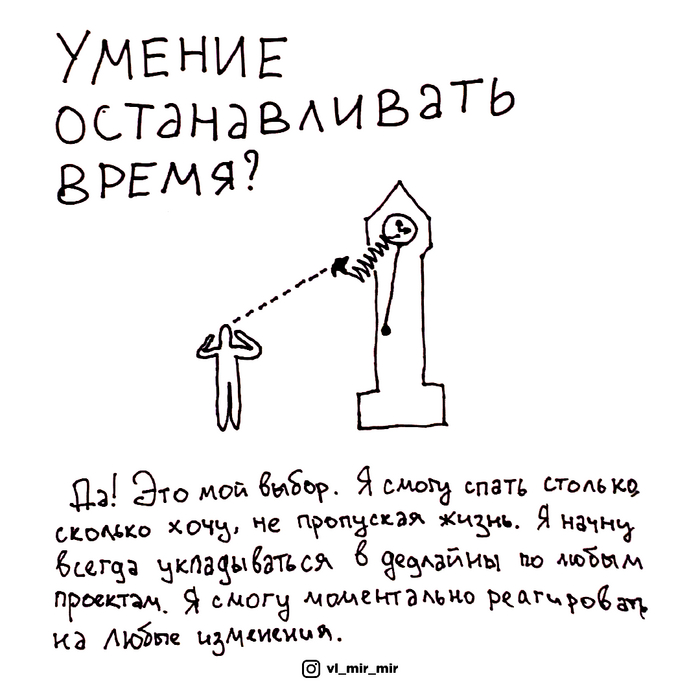 УМЕНИЕ
ОСТАНАВЛИВАТЬ
ВРЕМЯ?
Да! Это мой выбор. Я смогу спать столько,
сколько хочу, не пропуская жизнь. Я начну
всегда укладываться в дедлайны по любым
проектам. Я смогу моментально реагировать
на любые изменения.
vl_mir_mir